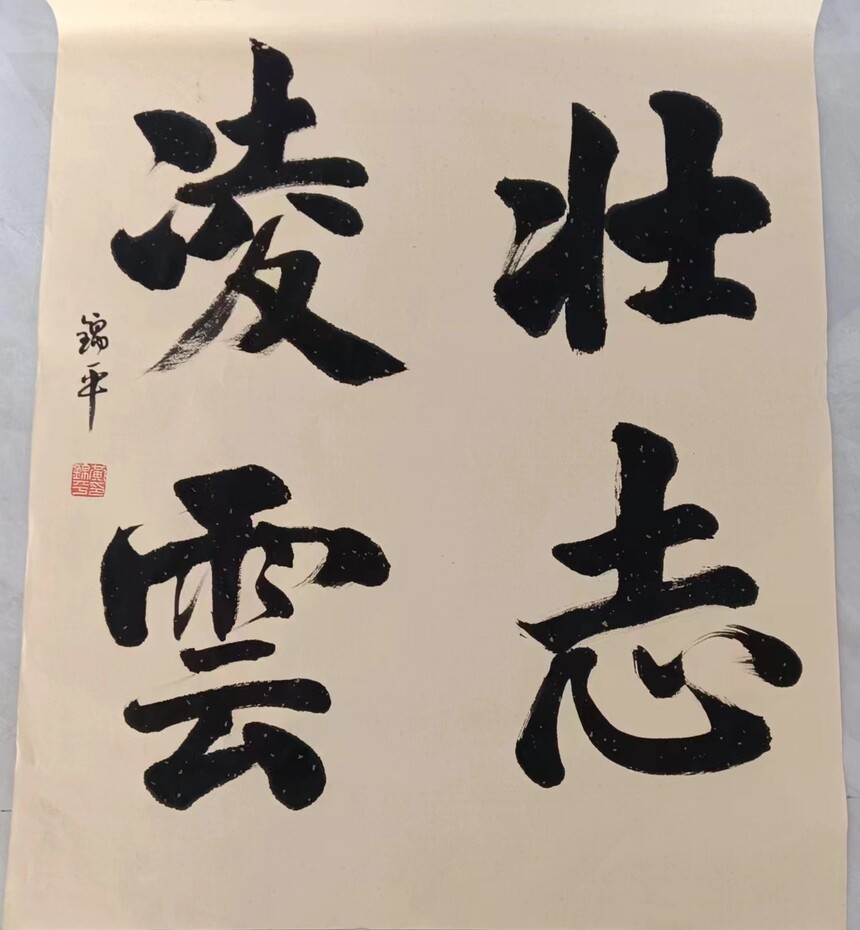 壮志
凌雲
錦平